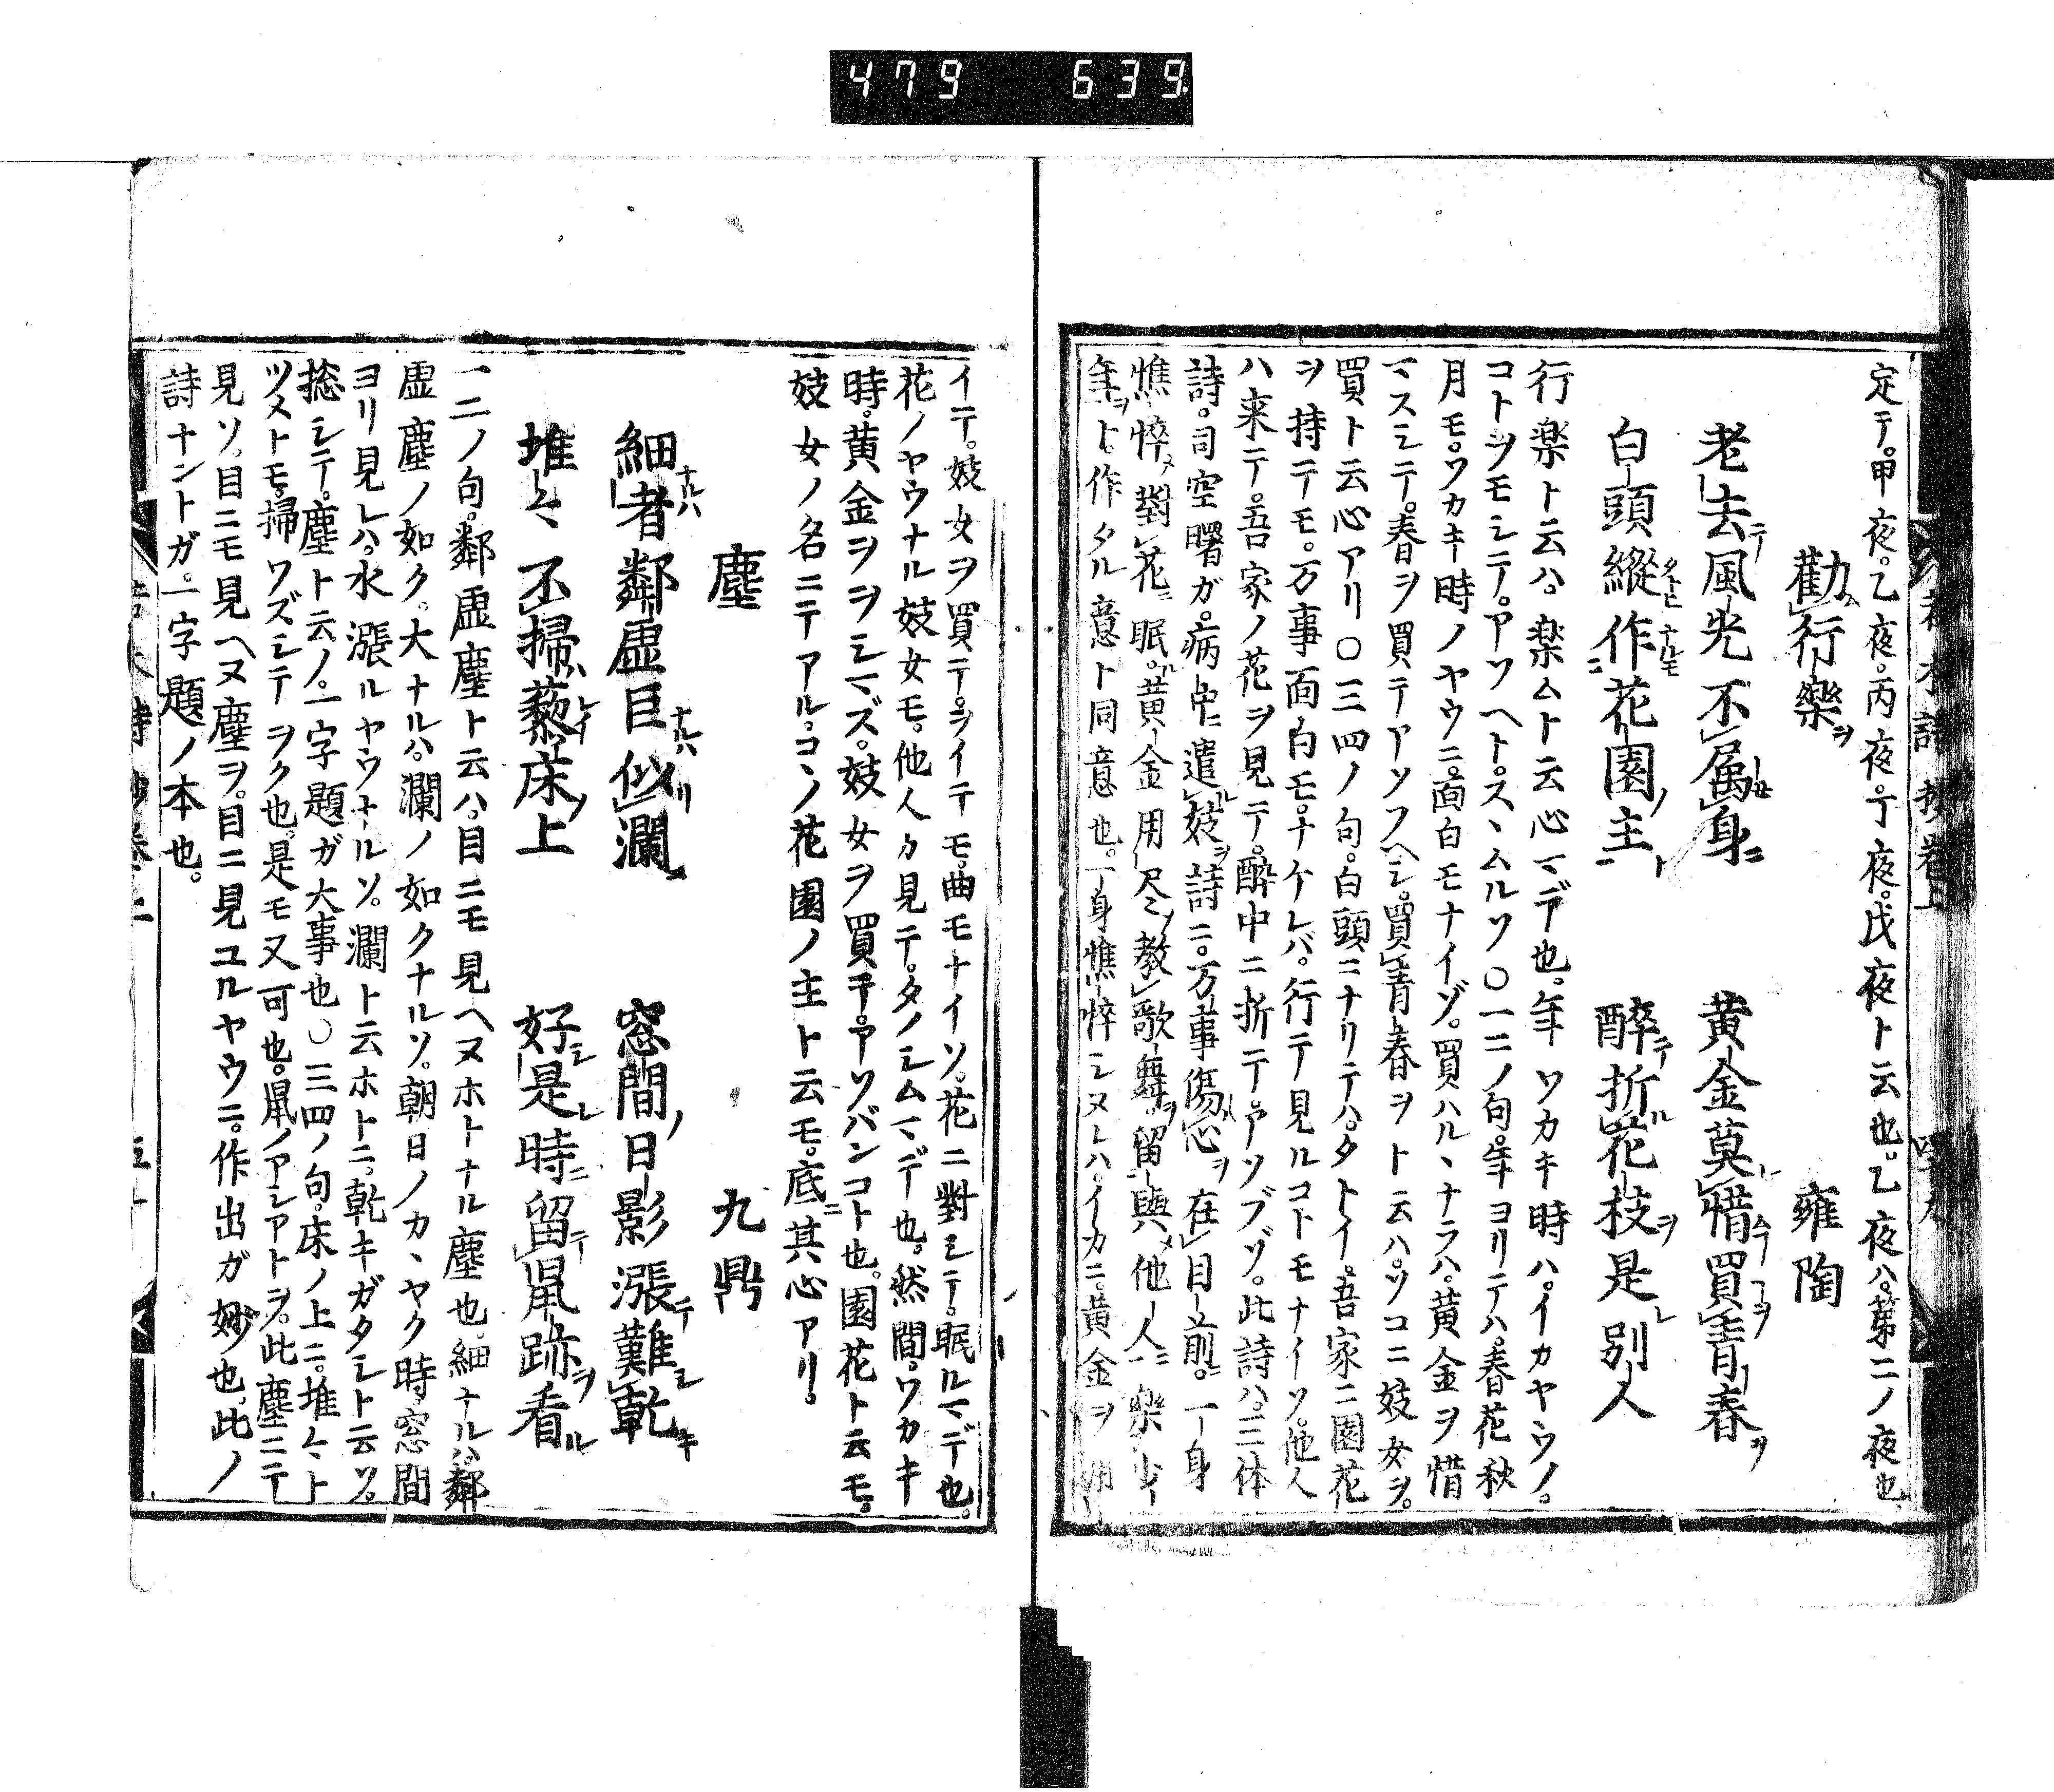 479 639
定テ。甲夜。乙夜。丙夜。丁夜。戊夜ト云也。乙夜ハ。第二ノ夜也。
勸行樂ヲ 雍陶
老去テ風光不属身ニ 黄金莫惜買青春ヲ
白頭縱作花園ノ主ト 醉テ折花枝ヲ是レ別人
行楽ト云ハ。楽ムト云心マデ也。年ワカキ時ハ。イカヤウノ。
コトヲモシテ。アソヘト。スヽムルソ〇一二ノ句。年ヨリテハ。春花秋
月モ。ワカキ時ノヤウニ。面白モナイゾ。買ハルヽナラハ。黄金ヲ惜
マスシテ。春ヲ買テアソフヘシ。買青春ヲト云ハ。ソコニ妓女ヲ。
買ト云心アリ〇三四ノ句。白頭ニナリテハ。タトイ。吾家ニ園花
ヲ持テモ。万事面白モ。ナケレバ。行テ見ルコトモナイソ。他人
ハ来テ。吾家ノ花ヲ見テ。醉中ニ折テ。アソブゾ。此詩ハ。三体
詩。司空曙ガ。病中ニ遣妓ヲ詩ニ。万事傷心ヲ在目前ニ。一身
憔悴メ對花ニ眠ル。黄金用尽メ教歌舞ヲ。留與メ他人ニ樂少
年ヲト。作タル意ト同意也。一身憔悴シヌレハ。イカニ。黄金ヲ用
イテ。妓女ヲ買テ。ヲイテモ。曲モナイソ。花ニ對シテ。眠ルマデ也。
花ノヤウナル妓女モ。他人カ見テ。タノシムマデ也。然間。ワカキ
時。黄金ヲヲシマズ。妓女ヲ買テ。アソバンコト也。園花ト云モ。
妓女ノ名ニテアル。コヽノ花園ノ主ト云モ。底ニ其心アリ。
塵 九鼎
細者ナルハ鄰虚巨ナルハ似リ瀾ニ 窓間ノ日影漲テ難シ乾キ
堆々不掃藜床ノ上 好シ是レ時ニ留テ鼠跡ヲ看ル
一二ノ句。鄰虚塵ト云ハ。目ニモ見ヘヌホトナル塵也。細ナルハ。鄰
虚塵ノ如ク。大ナルハ。瀾ノ如クナルソ。朝日ノカヽヤク時。窓間
ヨリ見レハ。水漲ルヤウナルソ。瀾ト云ホトニ。乾キガタシト云ソ。
捴シテ。塵ト云ノ。一字題ガ大事也〇三四ノ句。床ノ上ニ。堆々ト
ツメトモ。掃ワズシテヲク也。是モ又可也。鼠ノアシアトヲ。此塵ニテ
見ソ。目ニモ見ヘヌ塵ヲ。目ニ見ユルヤウニ。作出ガ妙也。此ノ
詩ナントガ。一字題ノ本也。